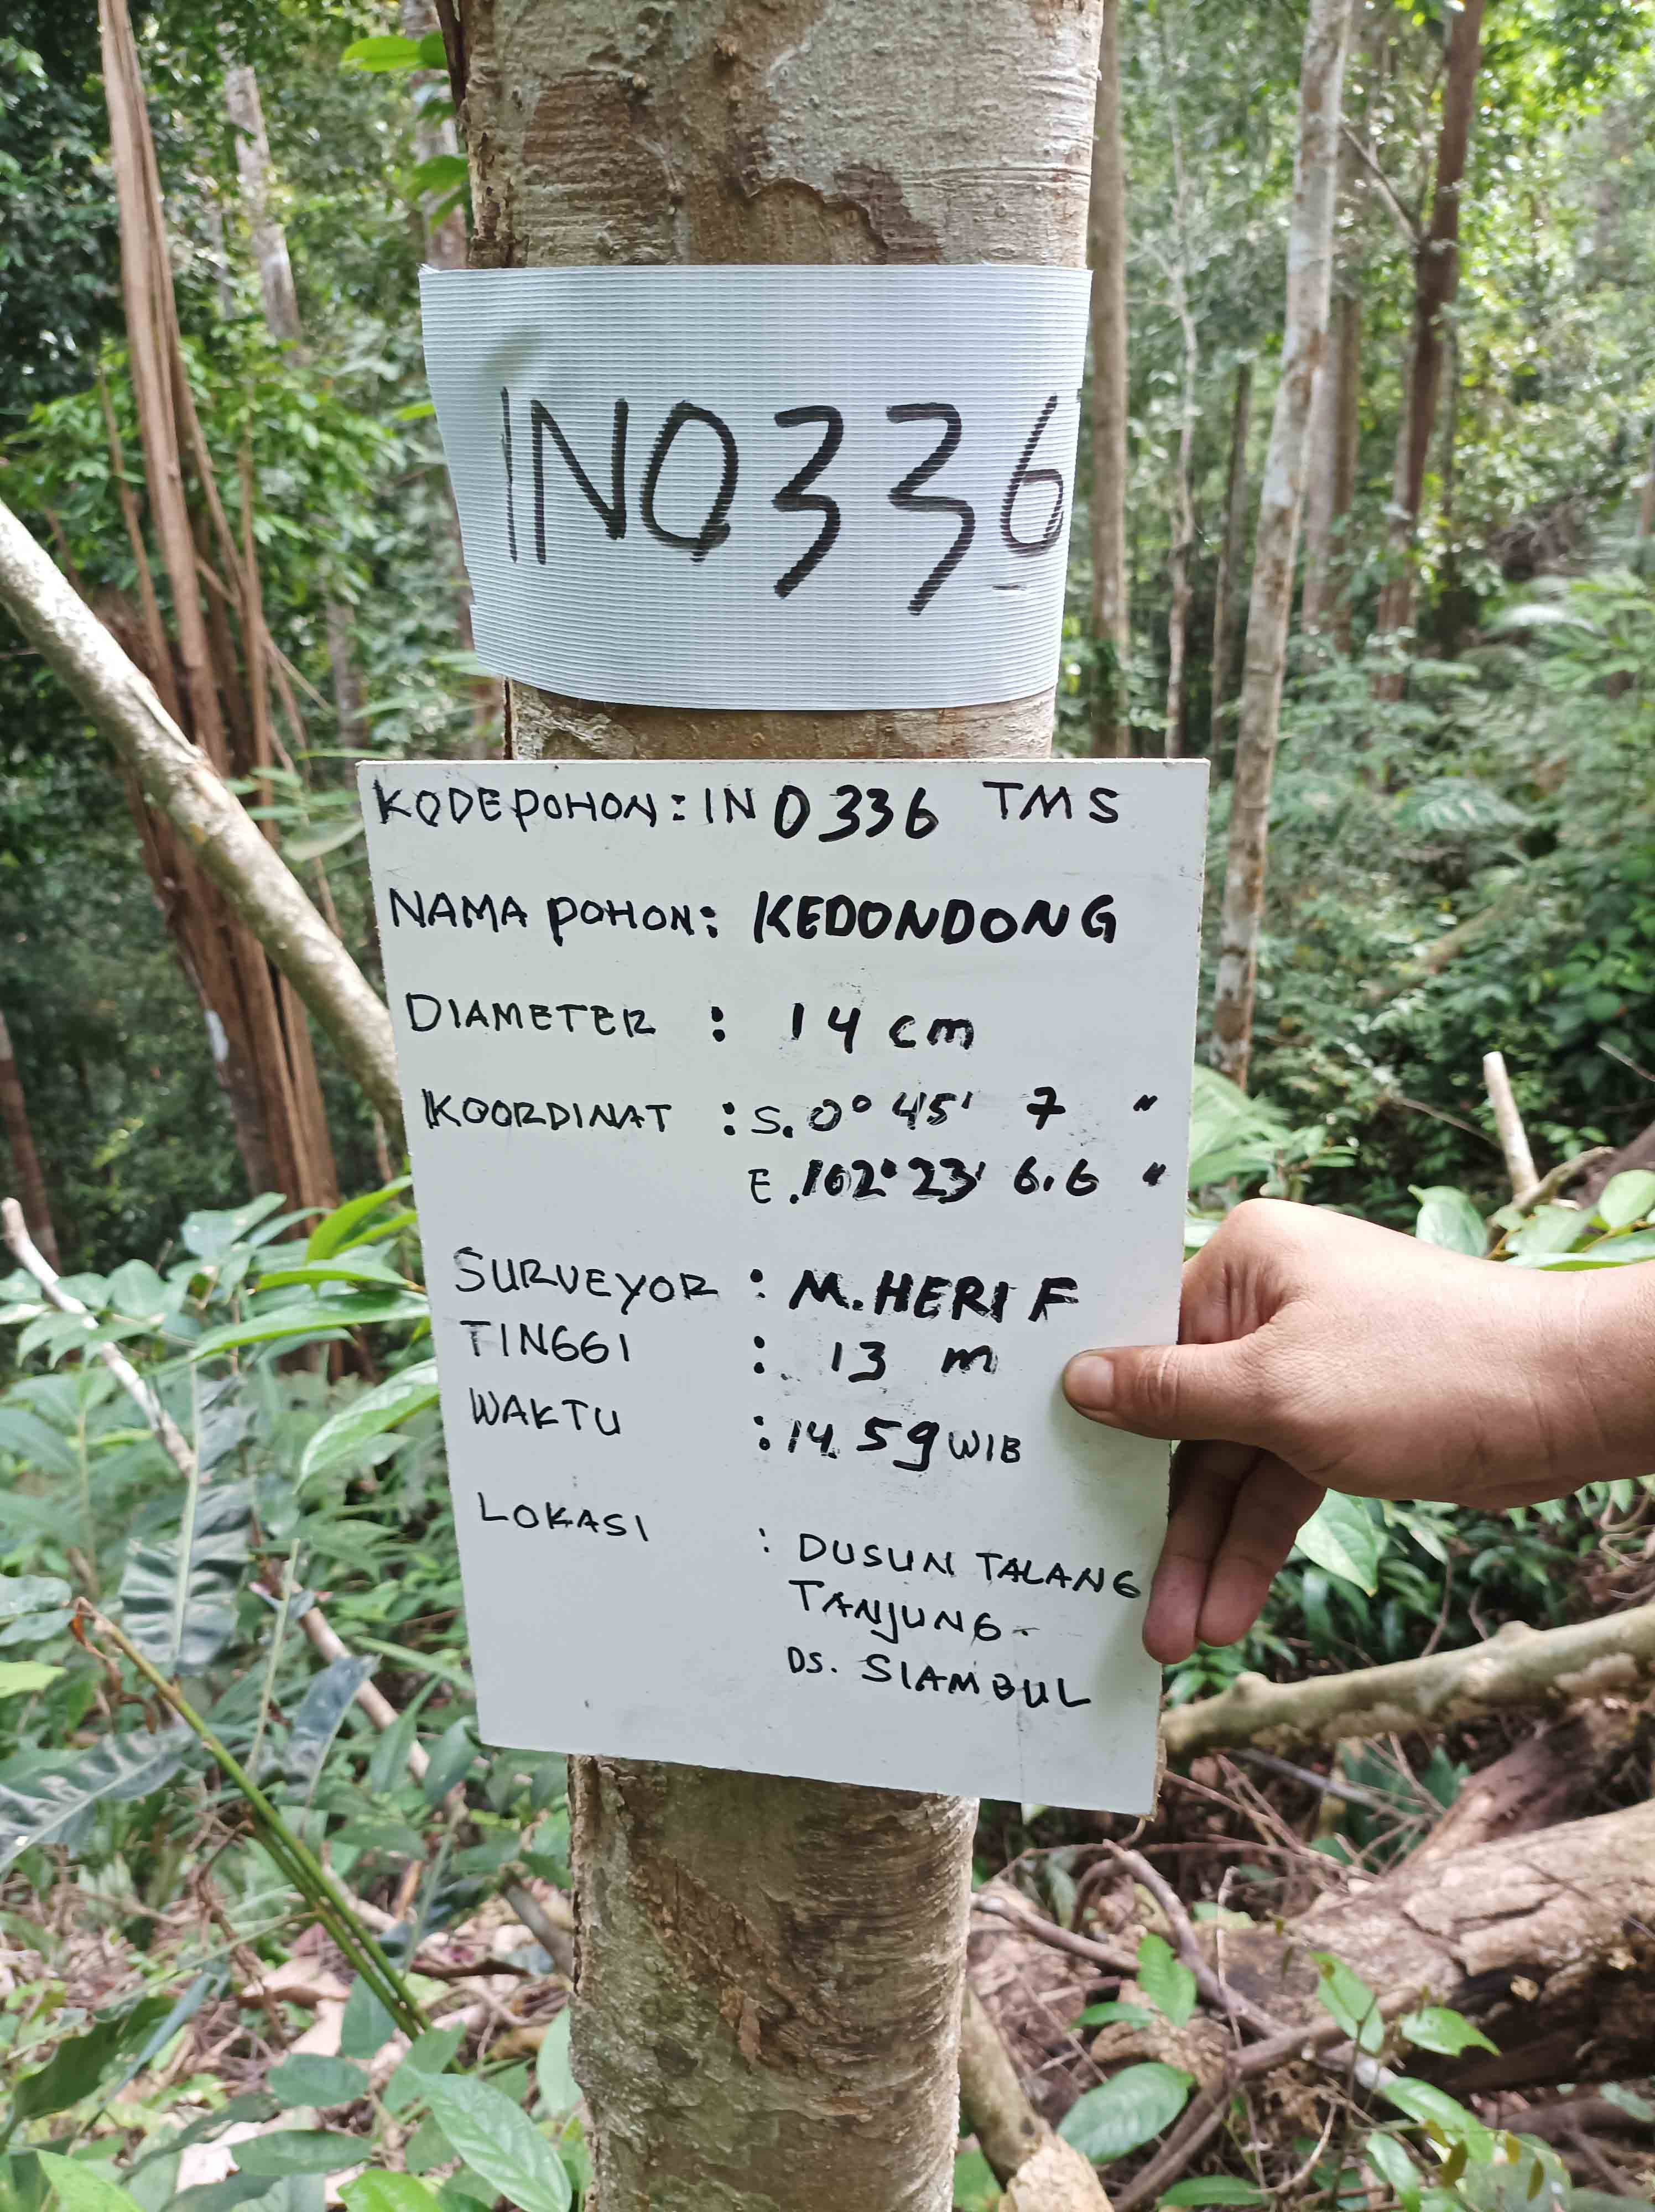 IN0336
KODE POHON : IN 0336 TMS
NAMA POHON : KEDONDONG
DIAMETER : 14 cm
KOORDINAT : S. 0° 45' 7 "
E. 102° 23' 6.6 "
SURVEYOR : M. HERI F
TINGGI : 13 m
WAKTU : 14.59 WIB
LOKASI : DUSUN TALANG
TANJUNG -
DS. SIAMBUL